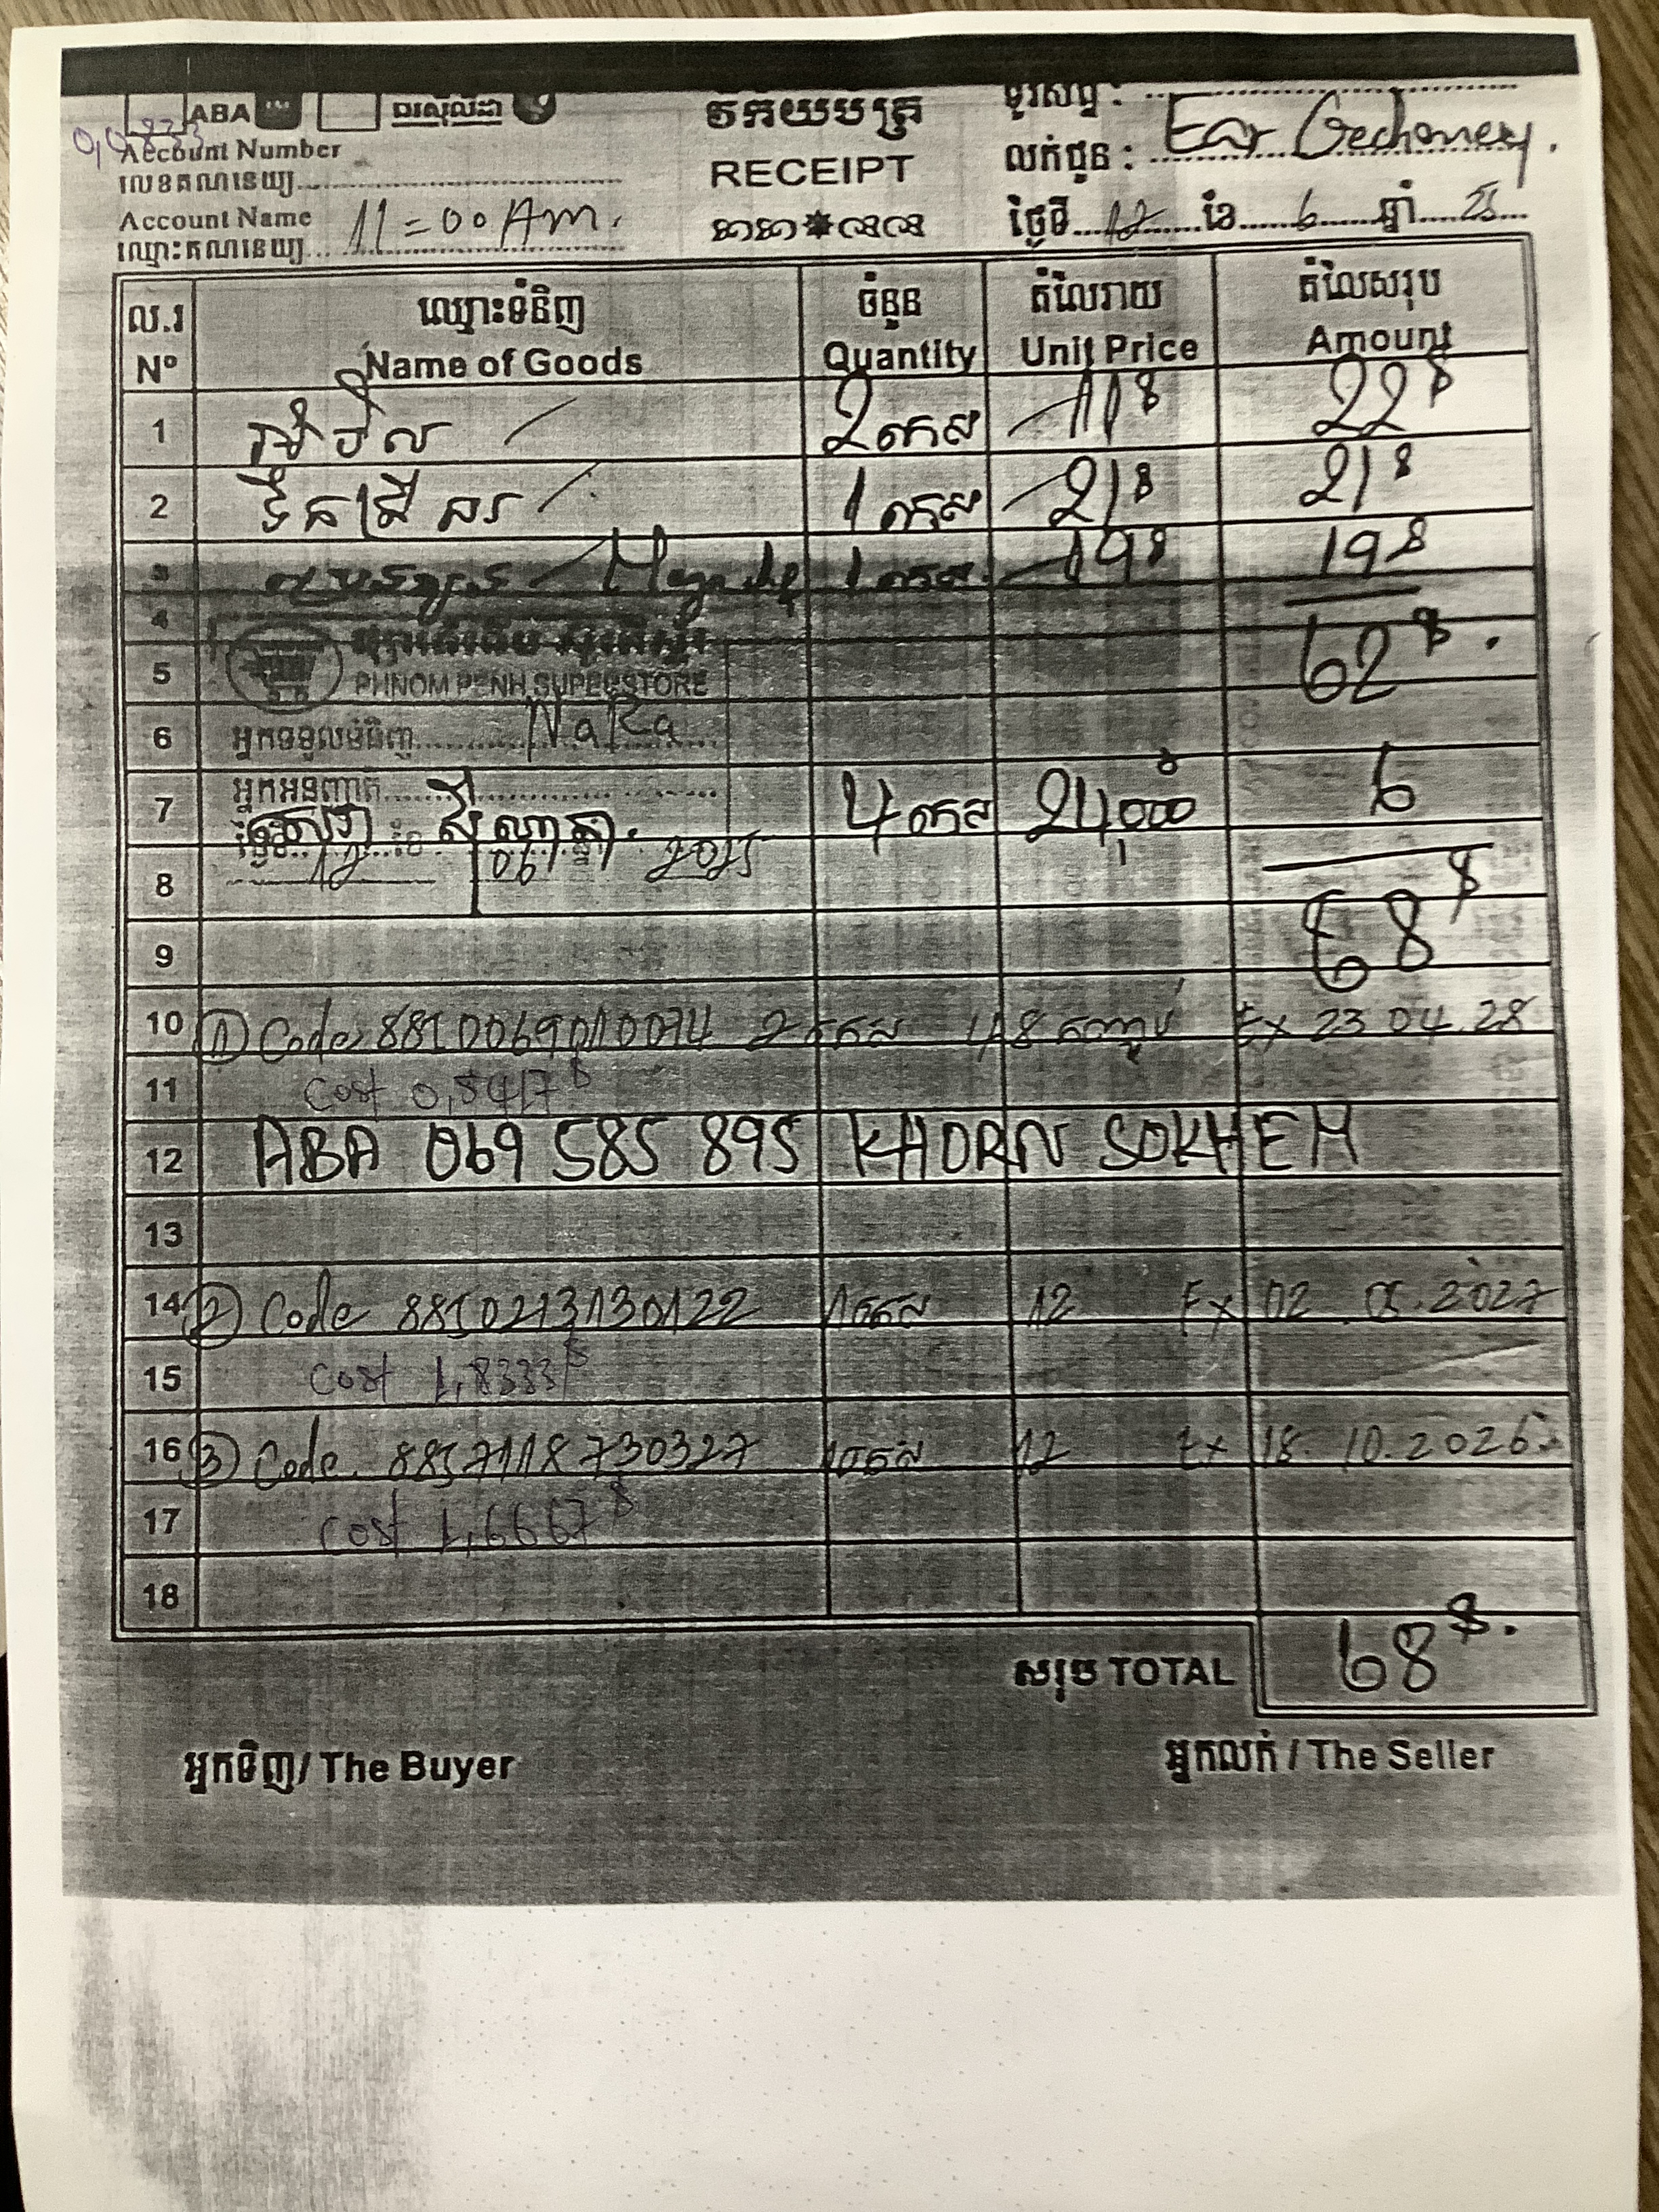 ABA
0,0833
Account Number
លេខគណនេយ្យ
Account Name 11=00 Am.
ឈ្មោះគណនេយ្យ
វិក្កយបត្រ
RECEIPT
ទូរស័ព្ទ :
លក់ជូន :
ថ្ងៃទី 12 ខែ 6 ឆ្នាំ 25
ល.រ ឈ្មោះទំនិញ ចំនួន តំលៃរាយ តំលៃសរុប
Nº Name of Goods Quantity Unit Price Amount
1 2 កេស 11$ 22$
2 1 កេស 21$ 21$
3 1 កេស 19$ 19$
4
5 PHNOM PENH SUPERSTORE 62$.
6 អ្នកទទួលទំនិញ Naka
អ្នកអនុញ្ញាត
7 4 កេស 24,000 6
12 06 2025
8
9 68$
10 ① Code 8850069010074 2 កេស 48 កញ្ចប់ Ex 23 04 28
11 Cost 0,5417$
12 ABA 069 585 895 KHORN SOKHEM
13
14 ② Code 8850213130122 1កេស 12 Ex 02 05.2027
15 Cost 1,8333$
16 ③ Code 8857118730327 1កេស 12 Ex 18. 10.2026
17 Cost 1,6667$
18
សរុប TOTAL 68$.
អ្នកទិញ/ The Buyer អ្នកលក់ / The Seller